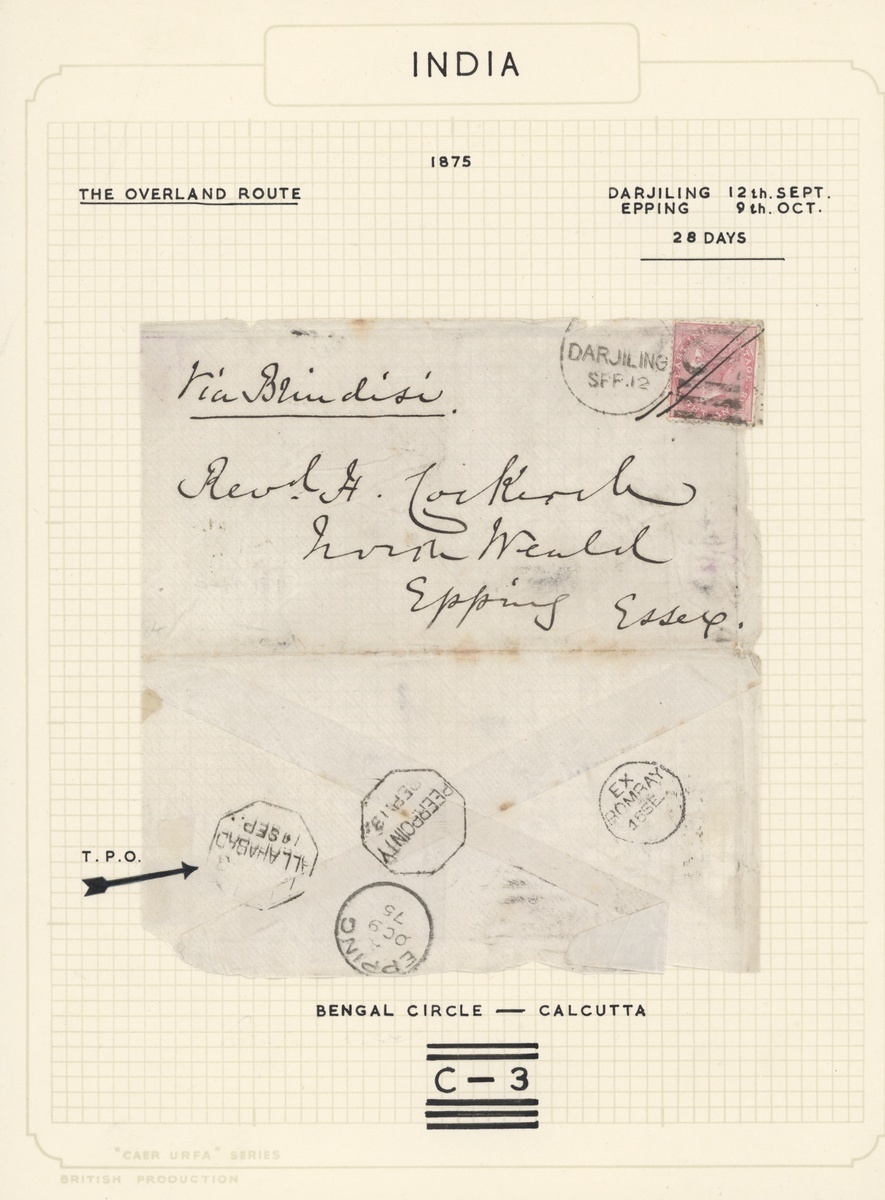 INDIA
1875
THE OVERLAND ROUTE
DARJILING 12th. SEPT.
EPPING 9th. OCT.
28 DAYS
DARJILING
SEP. 12
Via Brindisi.
Revd. H. Cockerell
North Weald
Epping Essex.
T. P. O.
ALLAHABAD
14 SEP.
PEERPOINTY
SEP. 13
EX
BOMBAY
EPPING
OC 9
75
BENGAL CIRCLE — CALCUTTA
C — 3
"CAER URFA" SERIES
BRITISH PRODUCTION